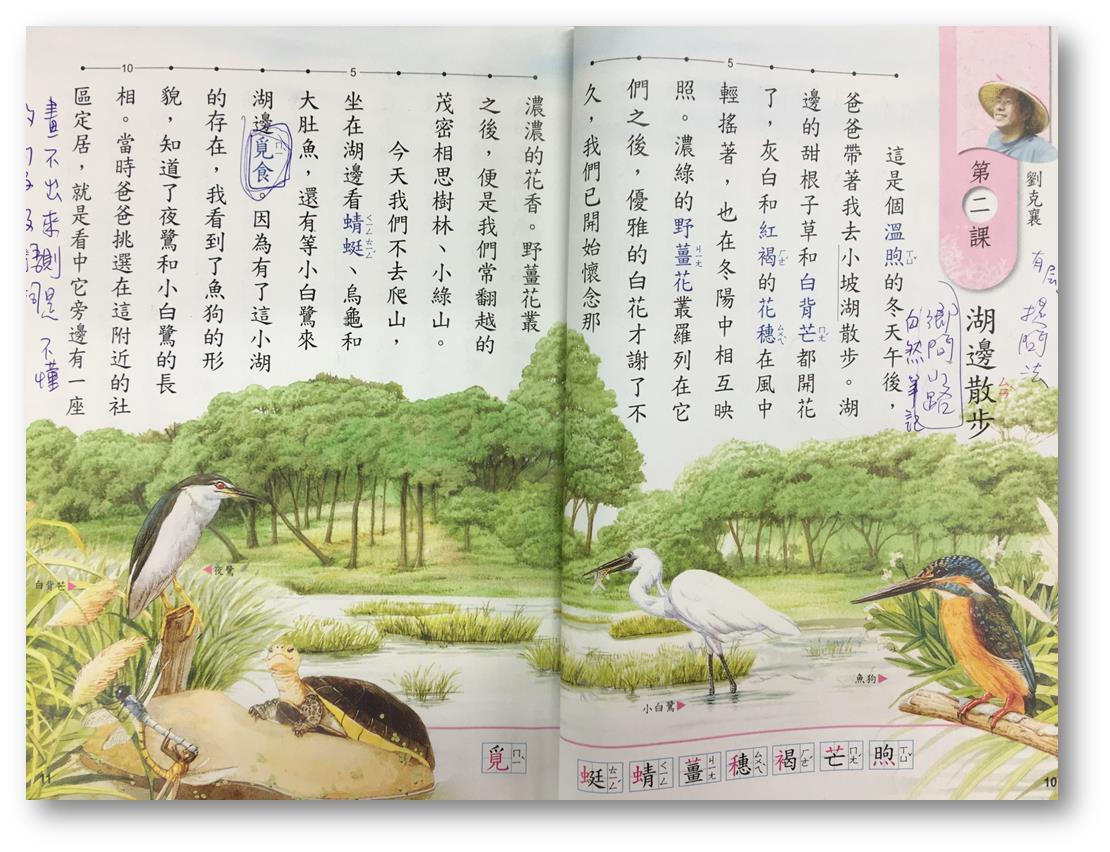 劉克襄
第二課
湖邊散步
ㄙㄢˋ
自然筆記
這是個溫煦的冬天午後，
ㄒㄩˇ
爸爸帶著我去小坡湖散步。湖
邊的甜根子草和白背芒都開花
ㄇㄤˊ
了，灰白和紅褐的花穗在風中
ㄏㄜˊ
ㄙㄨㄟˋ
輕搖著，也在冬陽中相互映
照。濃綠的野薑花叢羅列在它
ㄐㄧㄤ
們之後，優雅的白花才謝了不
久，我們已開始懷念那
5
煦 ㄒㄩˇ
芒 ㄇㄤˊ
褐 ㄏㄜˊ
穗 ㄙㄨㄟˋ
薑 ㄐㄧㄤ
蜻 ㄑㄧㄥ
蜓 ㄊㄧㄥˊ
魚狗
小白鷺
10
濃濃的花香。野薑花叢
之後，便是我們常翻越的
茂密相思樹林、小綠山。
今天我們不去爬山，
坐在湖邊看蜻蜓、烏龜和
ㄑㄧㄥ
ㄊㄧㄥˊ
大肚魚，還有等小白鷺來
湖邊覓食。因為有了這小湖
ㄇㄧˋ
的存在，我看到了魚狗的形
貌，知道了夜鷺和小白鷺的長
相。當時爸爸挑選在這附近的社
區定居，就是看中它旁邊有一座
5
10
畫不出來則是不懂
夜鷺
白背芒
覓 ㄇㄧˋ
11